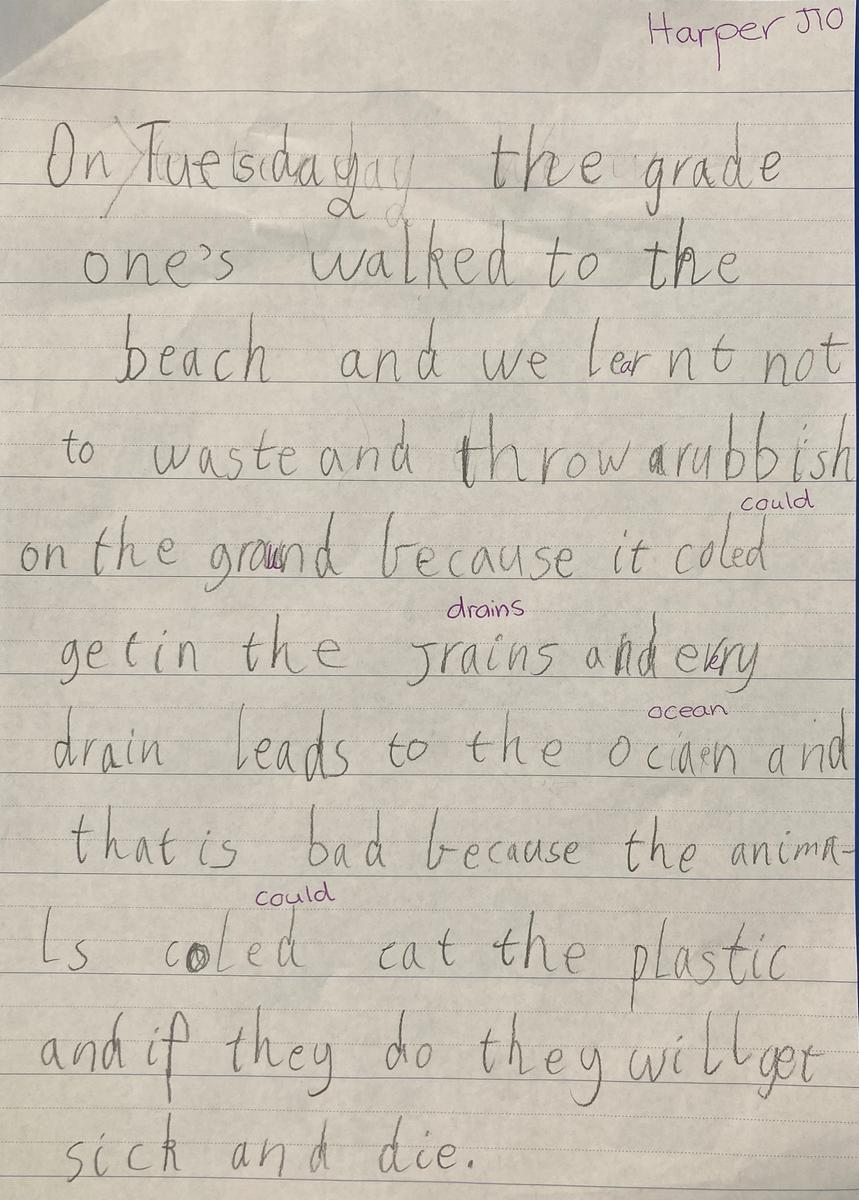 Harper J10
On Tuesday the grade
one's walked to the
beach and we learnt not
to waste and throw a rubbish
on the ground because it coled
could
get in the Jrains and every
drains
drain leads to the ociaen and
ocean
that is bad because the anima-
ls coled eat the plastic
could
and if they do they will get
sick and die.